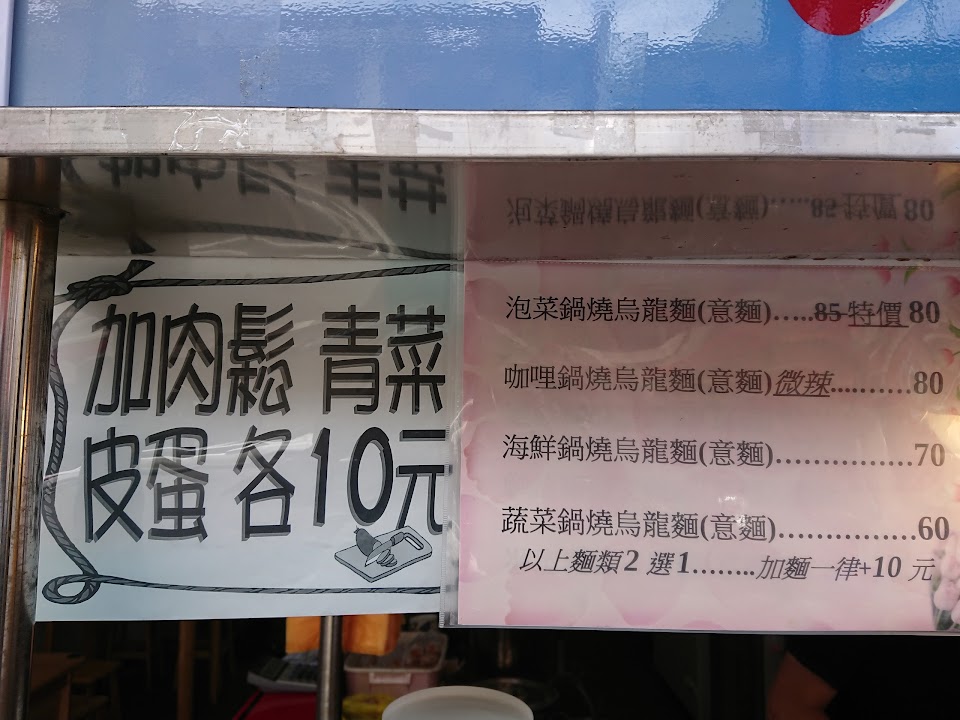 加肉鬆 青菜
皮蛋 各10元
泡菜鍋燒烏龍麵(意麵)…..85 特價80
咖哩鍋燒烏龍麵(意麵)微辣....……80
海鮮鍋燒烏龍麵(意麵)……………70
蔬菜鍋燒烏龍麵(意麵)……………60
以上麵類2 選1……..加麵一律+10 元